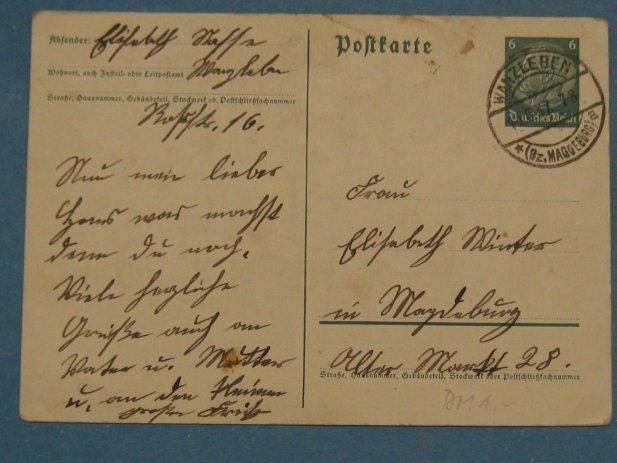 Absender: Elisabeth Nasse
Wohnort, auch Zustell- oder Leitpostamt Wanzleben
Straße, Hausnummer, Gebäudeteil, Stockwerk od. Postschließfachnummer
16.
Nun mein lieber
Hans was machst
denn du noch.
Viele herzliche
Grüße auch an
Vater u. Mutter
u. an den kleinen
großen Fritz
Postkarte
6 6
Deutsches Reich
WANZLEBEN
* (Bz. MAGDEBURG) a
Frau
Elisabeth Winter
in Magdeburg
Alter Markt 28.
Straße, Hausnummer, Gebäudeteil, Stockwerk oder Postschließfachnummer